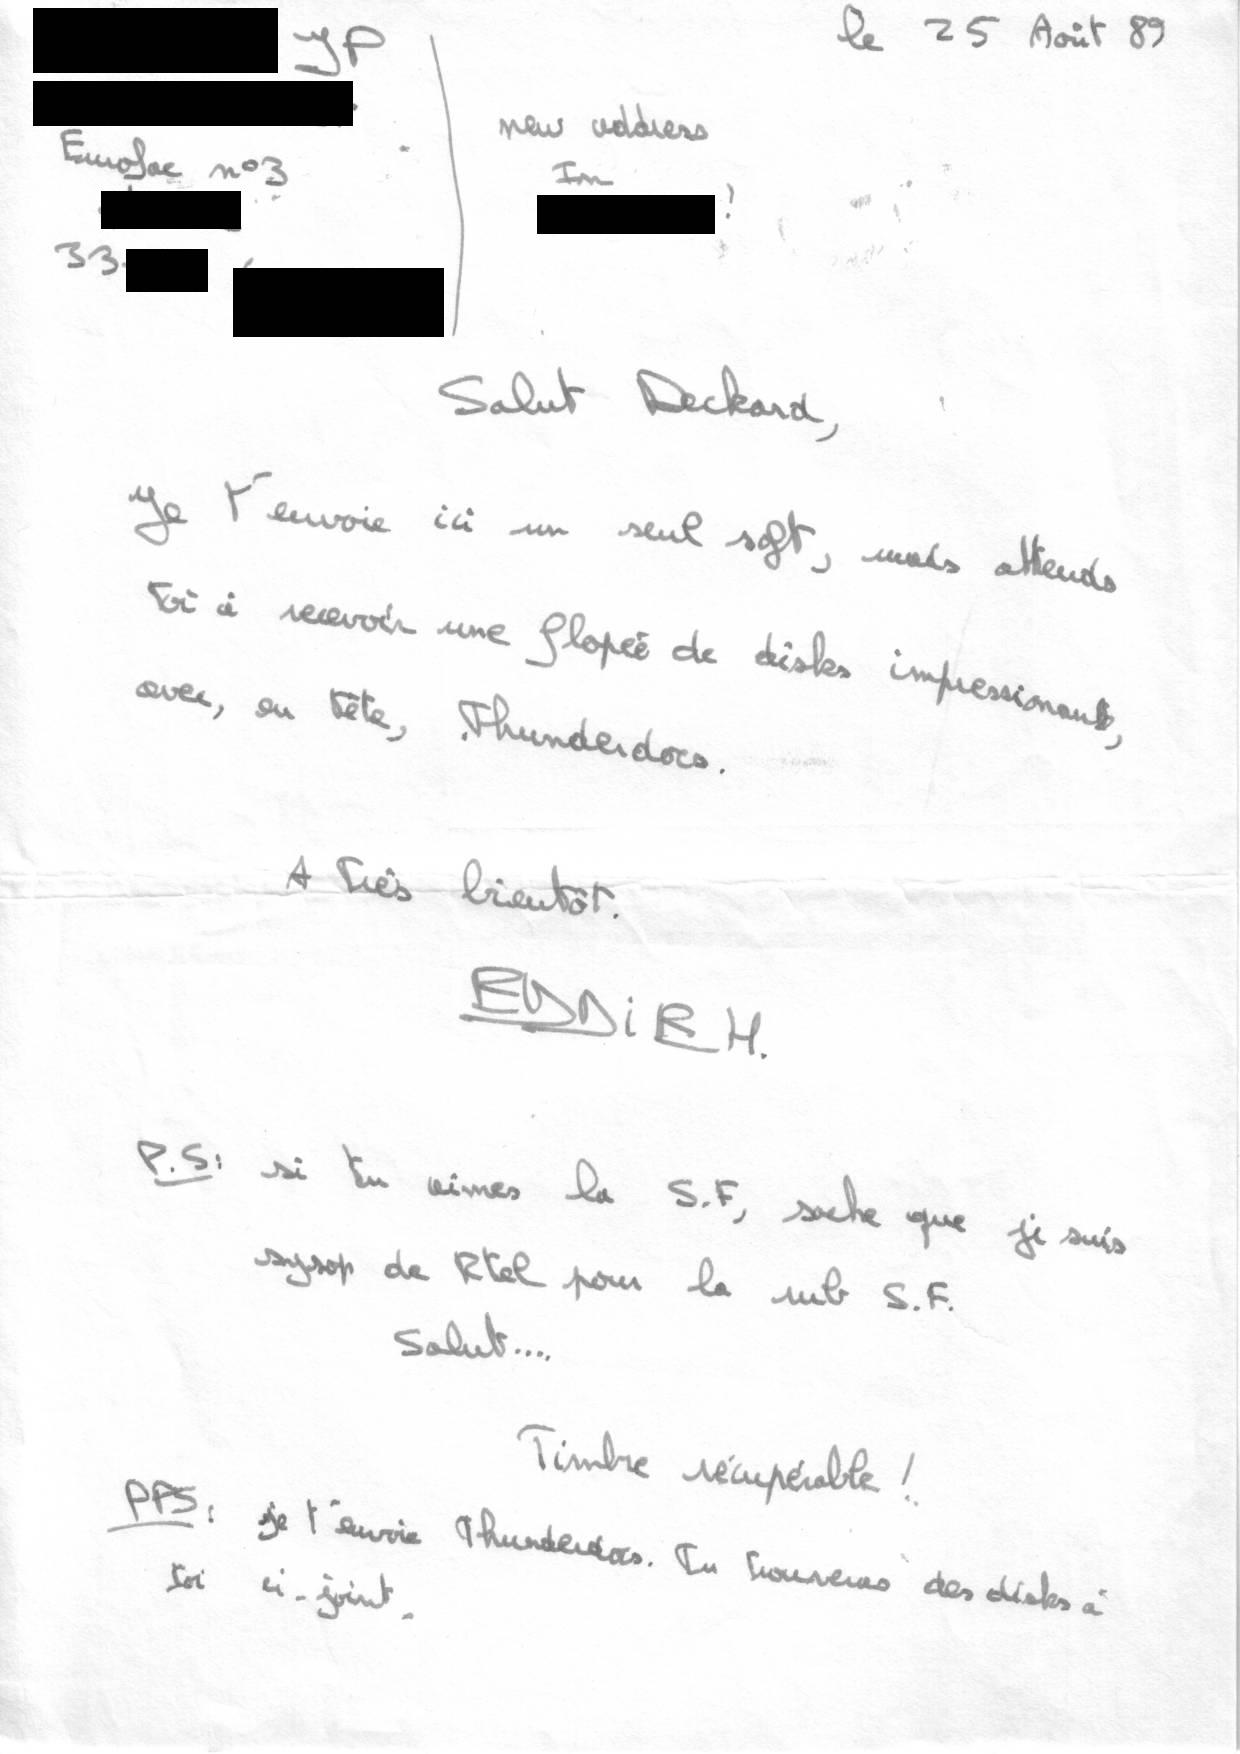 JP
le 25 Août 89
Eurofac n°3
33
new address
In
!
Salut Deckard,
Je t'envoie ici un seul soft, mais attends
toi à recevoir une flopée de disks impressionants,
avec, en tête, Thunderdocs.
A très bientôt.
EDDIE H.
P.S: si tu aimes la S.F, sache que je suis
sysop de Rtel pour la rub S.F.
Salut....
Timbre récupérable !
PPS: je t'envoie Thunderdocs. Tu trouveras des disks à
toi ci-joint.